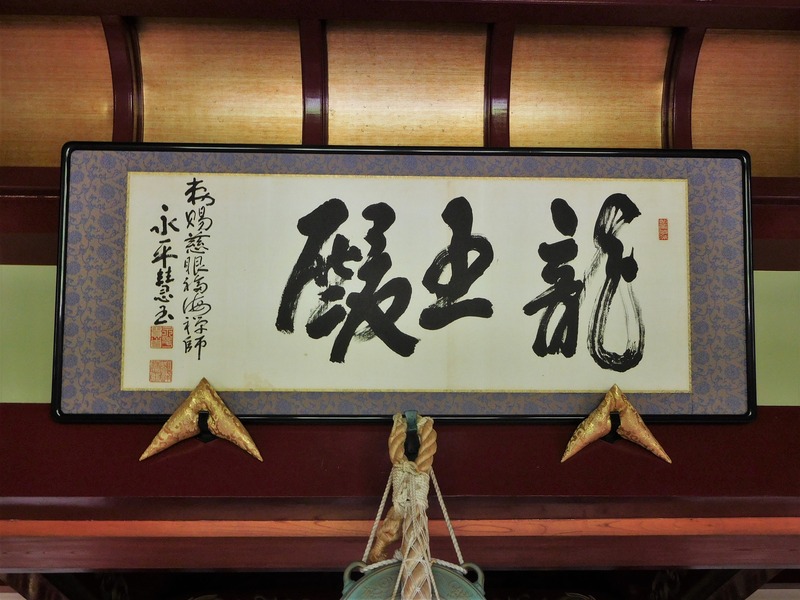 龍王殿
勅賜慈眼福海禅師
永平慧玉